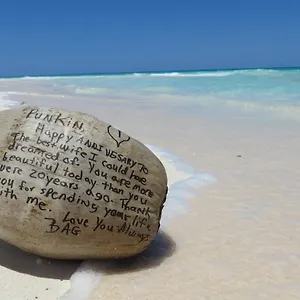 PUNKIN,
Happy ANNIVERSARY to
the best wife I could have
dreamed of. You are more
beautiful today than you
were 20 years ago. Thank
you for spending your life
with me.
Love You Always
DAG